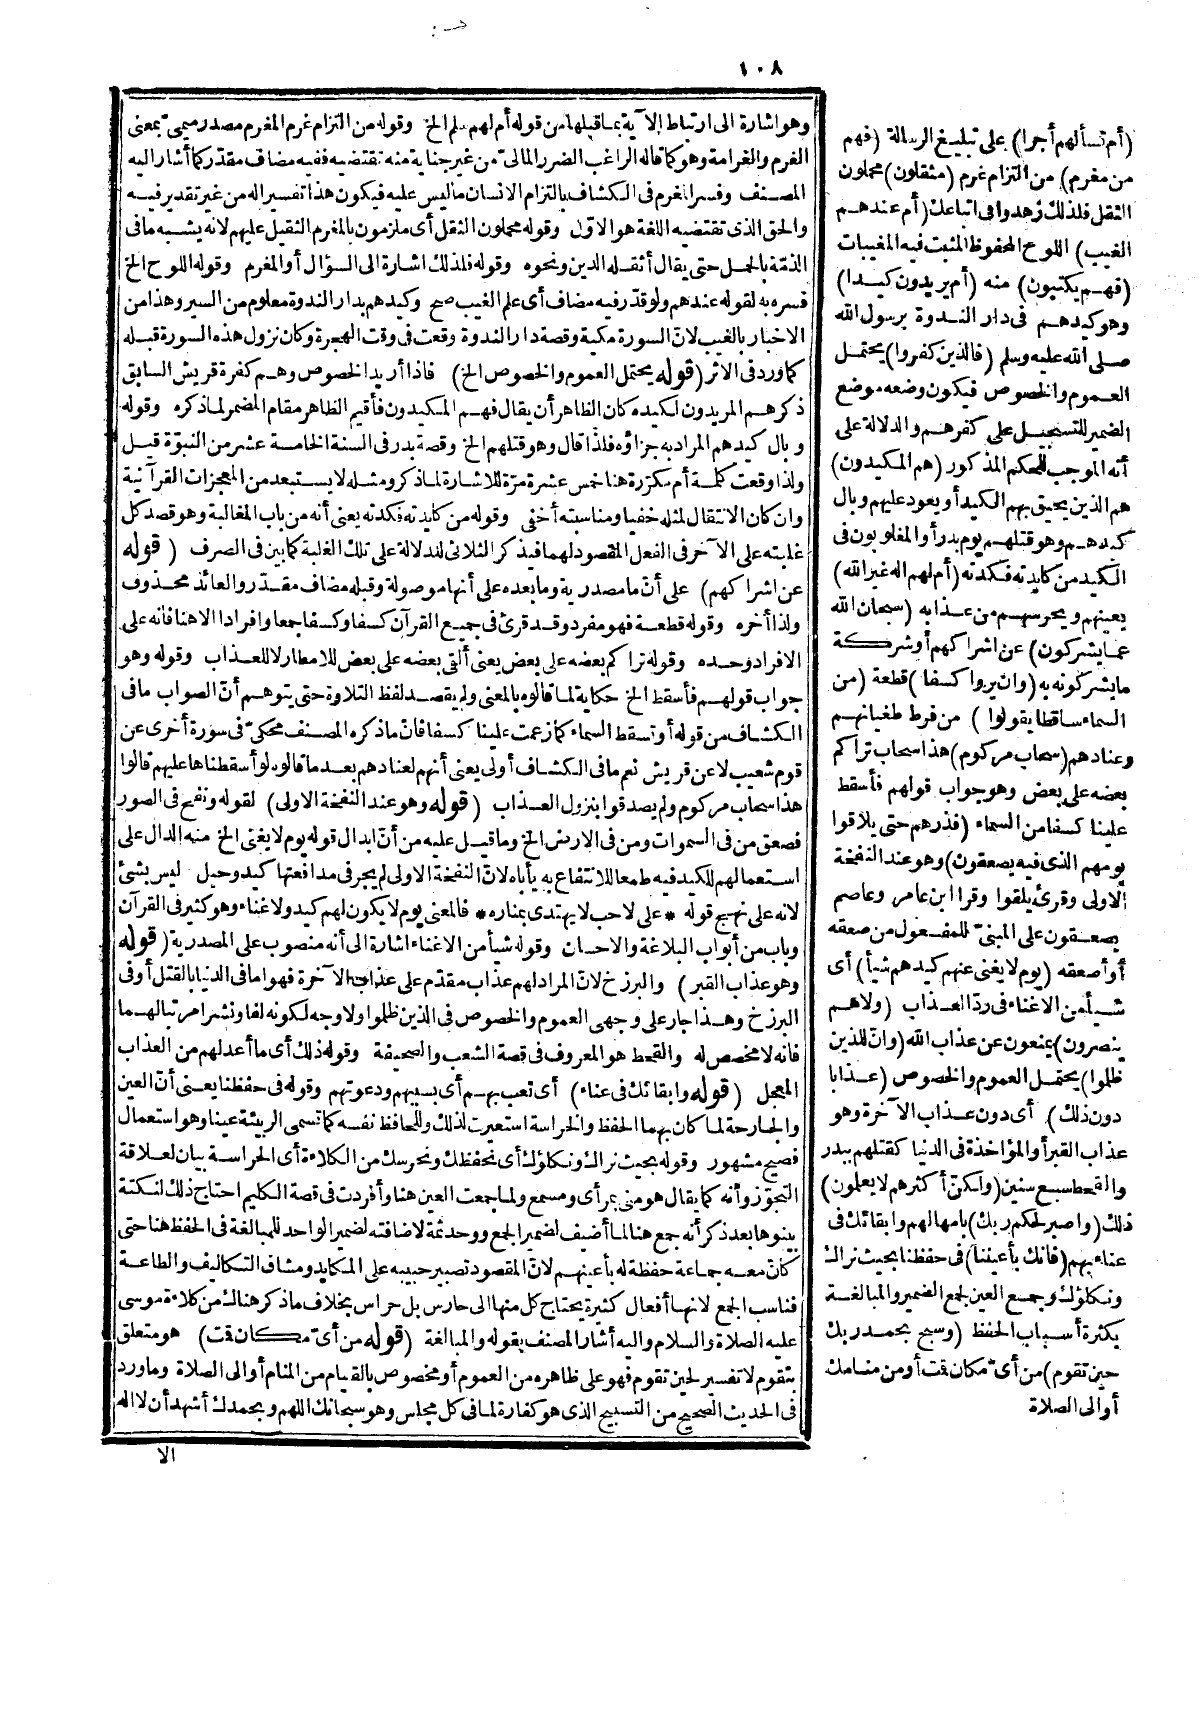 ١٠٨
(أم تسألهم أجرا) على تبليغ الرسالة (فهم
من مغرم) من التزام غرم (مثقلون) محملون
الثقل فلذلك زهدوا فى اتباعك (أم عندهم
الغيب) اللوح المحفوظ المثبت فيه المغيبات
(فهم يكتبون) منه (أم يريدون كيدا)
وهو كيدهم فى دار الندوة برسول الله
صلى الله عليه وسلم (فالذين كفروا) يحتمل
العموم والخصوص فيكون وضعه موضع
الضمير للتسجيل على كفرهم والدلالة على
أنه الموجب للحكم المذكور (هم المكيدون)
هم الذين يحيق بهم الكيد أو يعود عليهم وبال
كيدهم وهو قتلهم يوم بدر أو المغلوبون فى
الكيد من كايدته فكدته (أم لهم اله غير الله)
يعينهم ويحرسهم من عذابه (سبحان الله
عما يشركون) عن اشراكهم أو شركة
ما يشركونه به (وان يروا كسفا) قطعة (من
السماء ساقطا يقولوا) من فرط طغيانهم
وعنادهم (سحاب مركوم) هذا سحاب تراكم
بعضه على بعض وهو جواب قولهم فأسقط
علينا كسفا من السماء (فذرهم حتى يلاقوا
يومهم الذى فيه يصعقون) وهو عند النفخة
الاولى وقرئ يلقوا وقرا ابن عامر وعاصم
يصعقون على المبنىّ للمفعول من صعقه
أو أصعقه (يوم لا يغنى عنهم كيدهم شيأ) أى
شيأ من الاغناء فى ردّ العذاب (ولا هم
ينصرون) يمنعون عن عذاب الله (وانّ للذين
ظلموا) يحتمل العموم والخصوص (عذابا
دون ذلك) أى دون عذاب الآخرة وهو
عذاب القبر أو المؤاخذة فى الدنيا كقتلهم ببدر
والقحط سبع سنين (ولكنّ أكثرهم لا يعلمون)
ذلك (واصبر لحكم ربك) بامهالهم وابقائك فى
عناء بهم (فانك بأعيننا) فى حفظنا بحيث نراك
ونكلؤك وجمع العين لجمع الضمير والمبالغة
بكثرة أسباب الحفظ (وسبح بحمد ربك
حين تقوم) من أىّ مكان قت أو من منامك
أو الى الصلاة
وهو اشارة الى ارتباط الآية بما قبلها من قوله أم لهم سلم الخ وقوله من التزام غرم المغرم مصدر ميمىّ بمعنى
الغرم والغرامة وهو كما قاله الراغب الضرر المالىّ من غير جناية منه تقتضيه ففيه مضاف مقدّر كما أشار اليه
المصنف وفسر المغرم فى الكشاف بالتزام الانسان ما ليس عليه فيكون هذا تفسيرا له من غير تقدير فيه
والحق الذى تقتضيه اللغة هو الاوّل وقوله محملون الثقل أى ملزمون بالمغرم الثقيل عليهم لانه يشبه ما فى
الذمّة بالحمل حتى يقال أثقله الدين ونحوه وقوله فلذلك اشارة الى السؤال أو المغرم وقوله اللوح الخ
فسره به لقوله عندهم ولو قدّر فيه مضاف أى علم الغيب صح وكيدهم بدار الندوة معلوم من السير وهذا من
الاخبار بالغيب لانّ السورة مكية وقصة دار الندوة وقعت فى وقت الهجرة وكان نزول هذه السورة قبله
كما ورد فى الاثر (قوله يحتمل العموم والخصوص الخ) فاذا أريد الخصوص وهم كفرة قريش السابق
ذكرهم المريدون لكيده كان الظاهر أن يقال فهم المكيدون فأقيم الظاهر مقام المضمر لما ذكره وقوله
وبال كيدهم المراد به جزاؤه فلذا قال وهو قتلهم الخ وقصة بدر فى السنة الخامسة عشر من النبوّة قيل
ولذا وقعت كلمة أم مكرّرة هنا خمس عشرة مرّة للاشارة لما ذكر ومثله لا يستبعد من المعجزات القرآنية
وان كان الانتقال لمثله خفيا ومناسبته أخفى وقوله من كايدته فكدته يعنى أنه من باب المغالبة وهو قصد كل
غلبته على الآخر فى الفعل المقصود لهما فيذكر الثلاثى للدلالة على تلك الغلبة كما بين فى الصرف (قوله
عن اشراكهم) على أنّ ما مصدرية وما بعده على أنها موصولة وقبله مضاف مقدّر والعائد محذوف
ولذا أخره وقوله قطعة فهو مفرد وقد قرئ فى جميع القرآن كسفا وكسفا جمعا وافرادا الا هنا فانه على
الافراد وحده وقوله تراكم بعضه على بعض يعنى ألقى بعضه على بعض للامطار لا للعذاب وقوله وهو
جواب قولهم فأسقط الخ حكاية لما قالوه بالمعنى ولم يقصد لفظ التلاوة حتى يتوهم أنّ الصواب ما فى
الكشاف من قوله أو تسقط السماء كما زعمت علينا كسفا فانّ ما ذكره المصنف محكىّ فى سورة أخرى عن
قوم شعيب لا عن قريش نعم ما فى الكشاف أولى يعنى أنهم لعنادهم بعد ما قالوه لو أسقطناها عليهم قالوا
هذا سحاب مركوم ولم يصدقوا بنزول العذاب (قوله وهو عند النفخة الاولى) لقوله ونفخ فى الصور
فصعق من فى السموات ومن فى الارض الخ وما قيل عليه من أنّ ابدال قوله يوم لا يغنى الخ منه الدال على
استعمالهم للكيد فيه طمعا للانتفاع به يأباه لانّ النفخة الاولى لم يجر فى مدافعتها كيد وحيل ليس بشئ
لانه على نهج قوله * على لاحب لا يهتدى بمناره * فالمعنى يوم لا يكون لهم كيد ولا غناء وهو كثير فى القرآن
وباب من أبواب البلاغة والاحسان وقوله شيأ من الاغناء اشارة الى أنه منصوب على المصدرية (قوله
وهو عذاب القبر) والبرزخ لانّ المراد لهم عذاب مقدّم على عذاب الآخرة فهو اما فى الدنيا بالقتل أو فى
البرزخ وهذا جار على وجهى العموم والخصوص فى الذين ظلموا ولا وجه لكونه لفا ونشرا مرتبا لهما
فانه لا مخصص له والقحط هو المعروف فى قصة الشعب والصحيفة وقوله ذلك أى ما أعدلهم من العذاب
المعجل (قوله وابقائك فى عناء) أى تعب بهم أى بسببهم ودعوتهم وقوله فى حفظنا يعنى أنّ العين
والجارحة لما كان بهما الحفظ والحراسة استعيرت لذلك وللحافظ نفسه كما تسمى الربيئة عينا وهو استعمال
فصيح مشهور وقوله بحيث نراك ونكلؤك أى نحفظك ونحرسك من الكلاءة أى الحراسة بيان لعلاقة
التجوّز وأنه كما يقال هو منى بمرأى ومسمع ولما جمعت العين هنا وأفردت فى قصة الكليم احتاج ذلك لنكتة
بينوها بعد ذكر أنه جمع هنا لما أضيف لضمير الجمع ووحد ثمة لاضافته لضمير الواحد للمبالغة فى الحفظ هنا حتى
كأنّ معه جماعة حفظة له بأعينهم لانّ المقصود تصبير حبيبه على المكايد ومشاق التكاليف والطاعة
فناسب الجمع لانها أفعال كثيرة يحتاج كل منها الى حارس بل حراس بخلاف ما ذكر هناك من كلاءة موسى
عليه الصلاة والسلام واليه أشار المصنف بقوله والمبالغة (قوله من أىّ مكان قت) هو متعلق
بتقوم لا تفسير لحين تقوم فهو على ظاهره من العموم أو مخصوص بالقيام من المنام أو الى الصلاة وما ورد
فى الحديث الصحيح من التسبيح الذى هو كفارة لما فى كل مجلس وهو سبحانك اللهم وبحمدك أشهد أن لا اله
الا